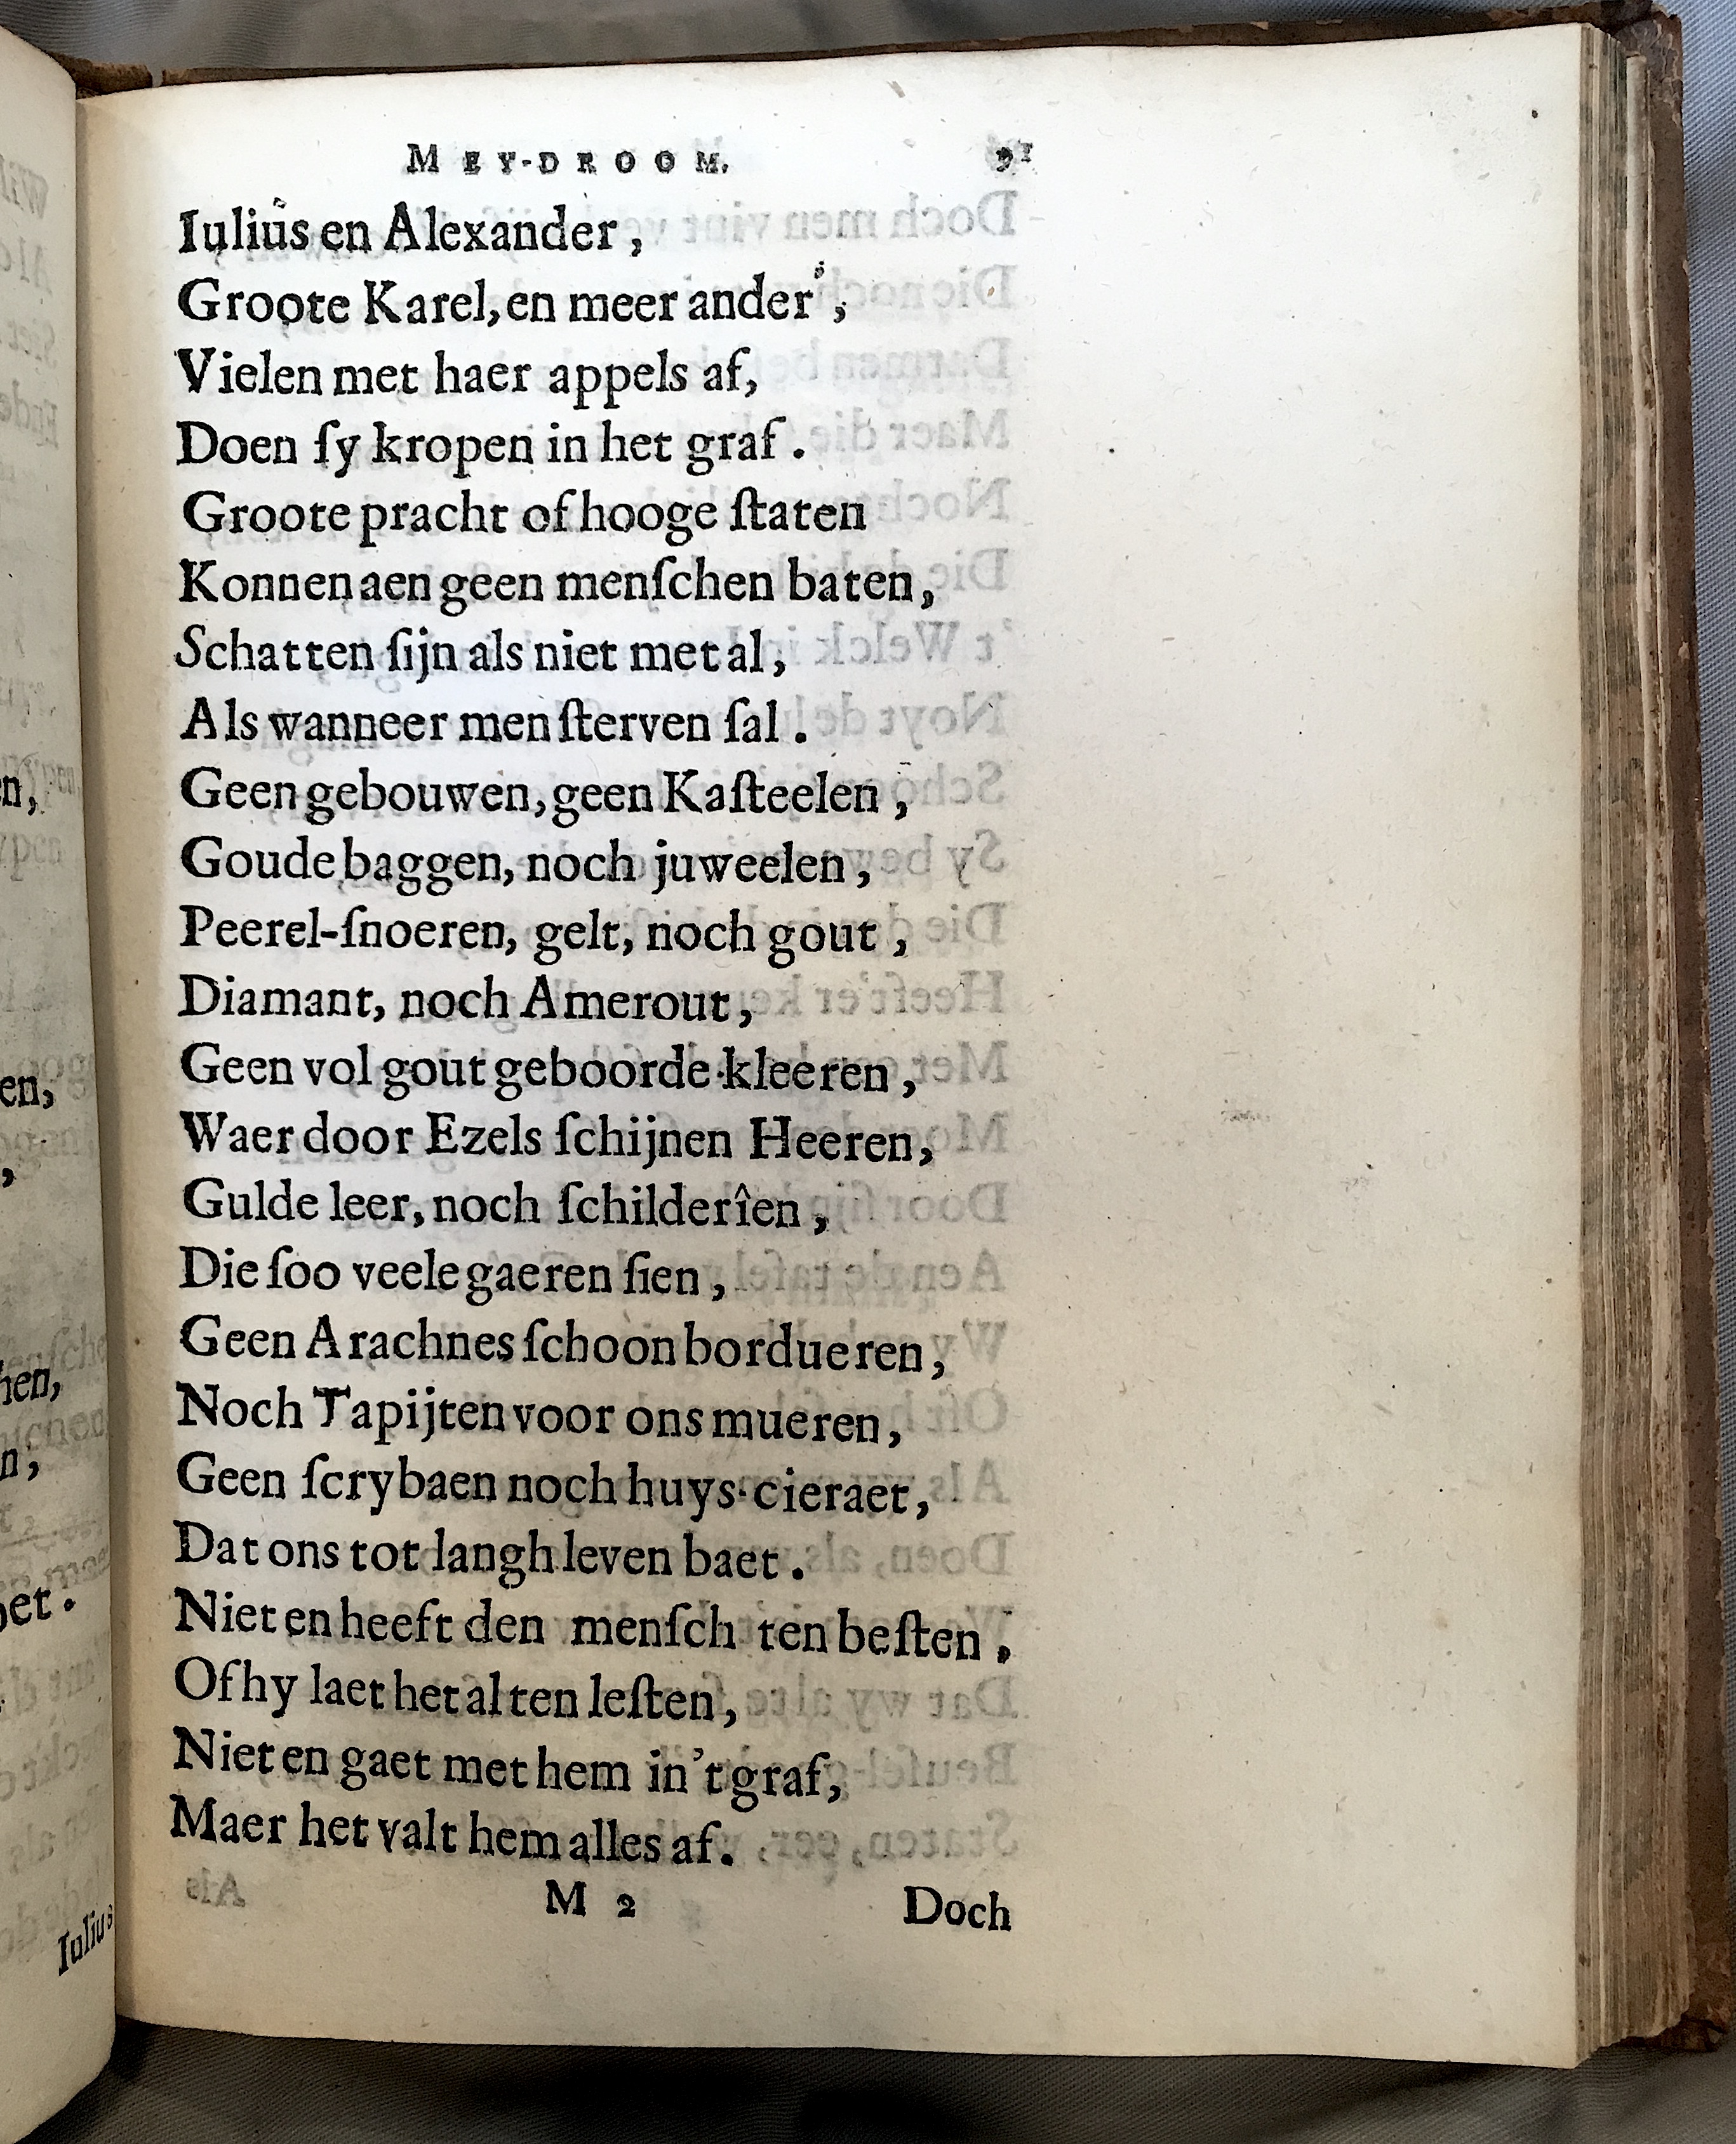 MEY-DROOM. 91
Iuliûs en Alexander,
Groote Karel, en meer ander',
Vielen met haer appels af,
Doen ſy kropen in het graf.
Groote pracht of hooge ſtaten
Konnen aen geen menſchen baten,
Schatten ſijn als niet met al,
Als wanneer men ſterven ſal.
Geen gebouwen, geen Kaſteelen,
Goude baggen, noch juweelen,
Peerel-ſnoeren, gelt, noch gout,
Diamant, noch Amerout,
Geen vol gout geboorde kleeren,
Waer door Ezels ſchijnen Heeren,
Gulde leer, noch ſchilderîen,
Die ſoo veele gaeren ſien,
Geen Arachnes ſchoon bordueren,
Noch Tapijten voor ons mueren,
Geen ſcrybaen noch huys-cieraet,
Dat ons tot langh leven baet.
Niet en heeft den menſch ten beſten,
Of hy laet het al ten leſten,
Niet en gaet met hem in 't graf,
Maer het valt hem alles af.
M 2 Doch